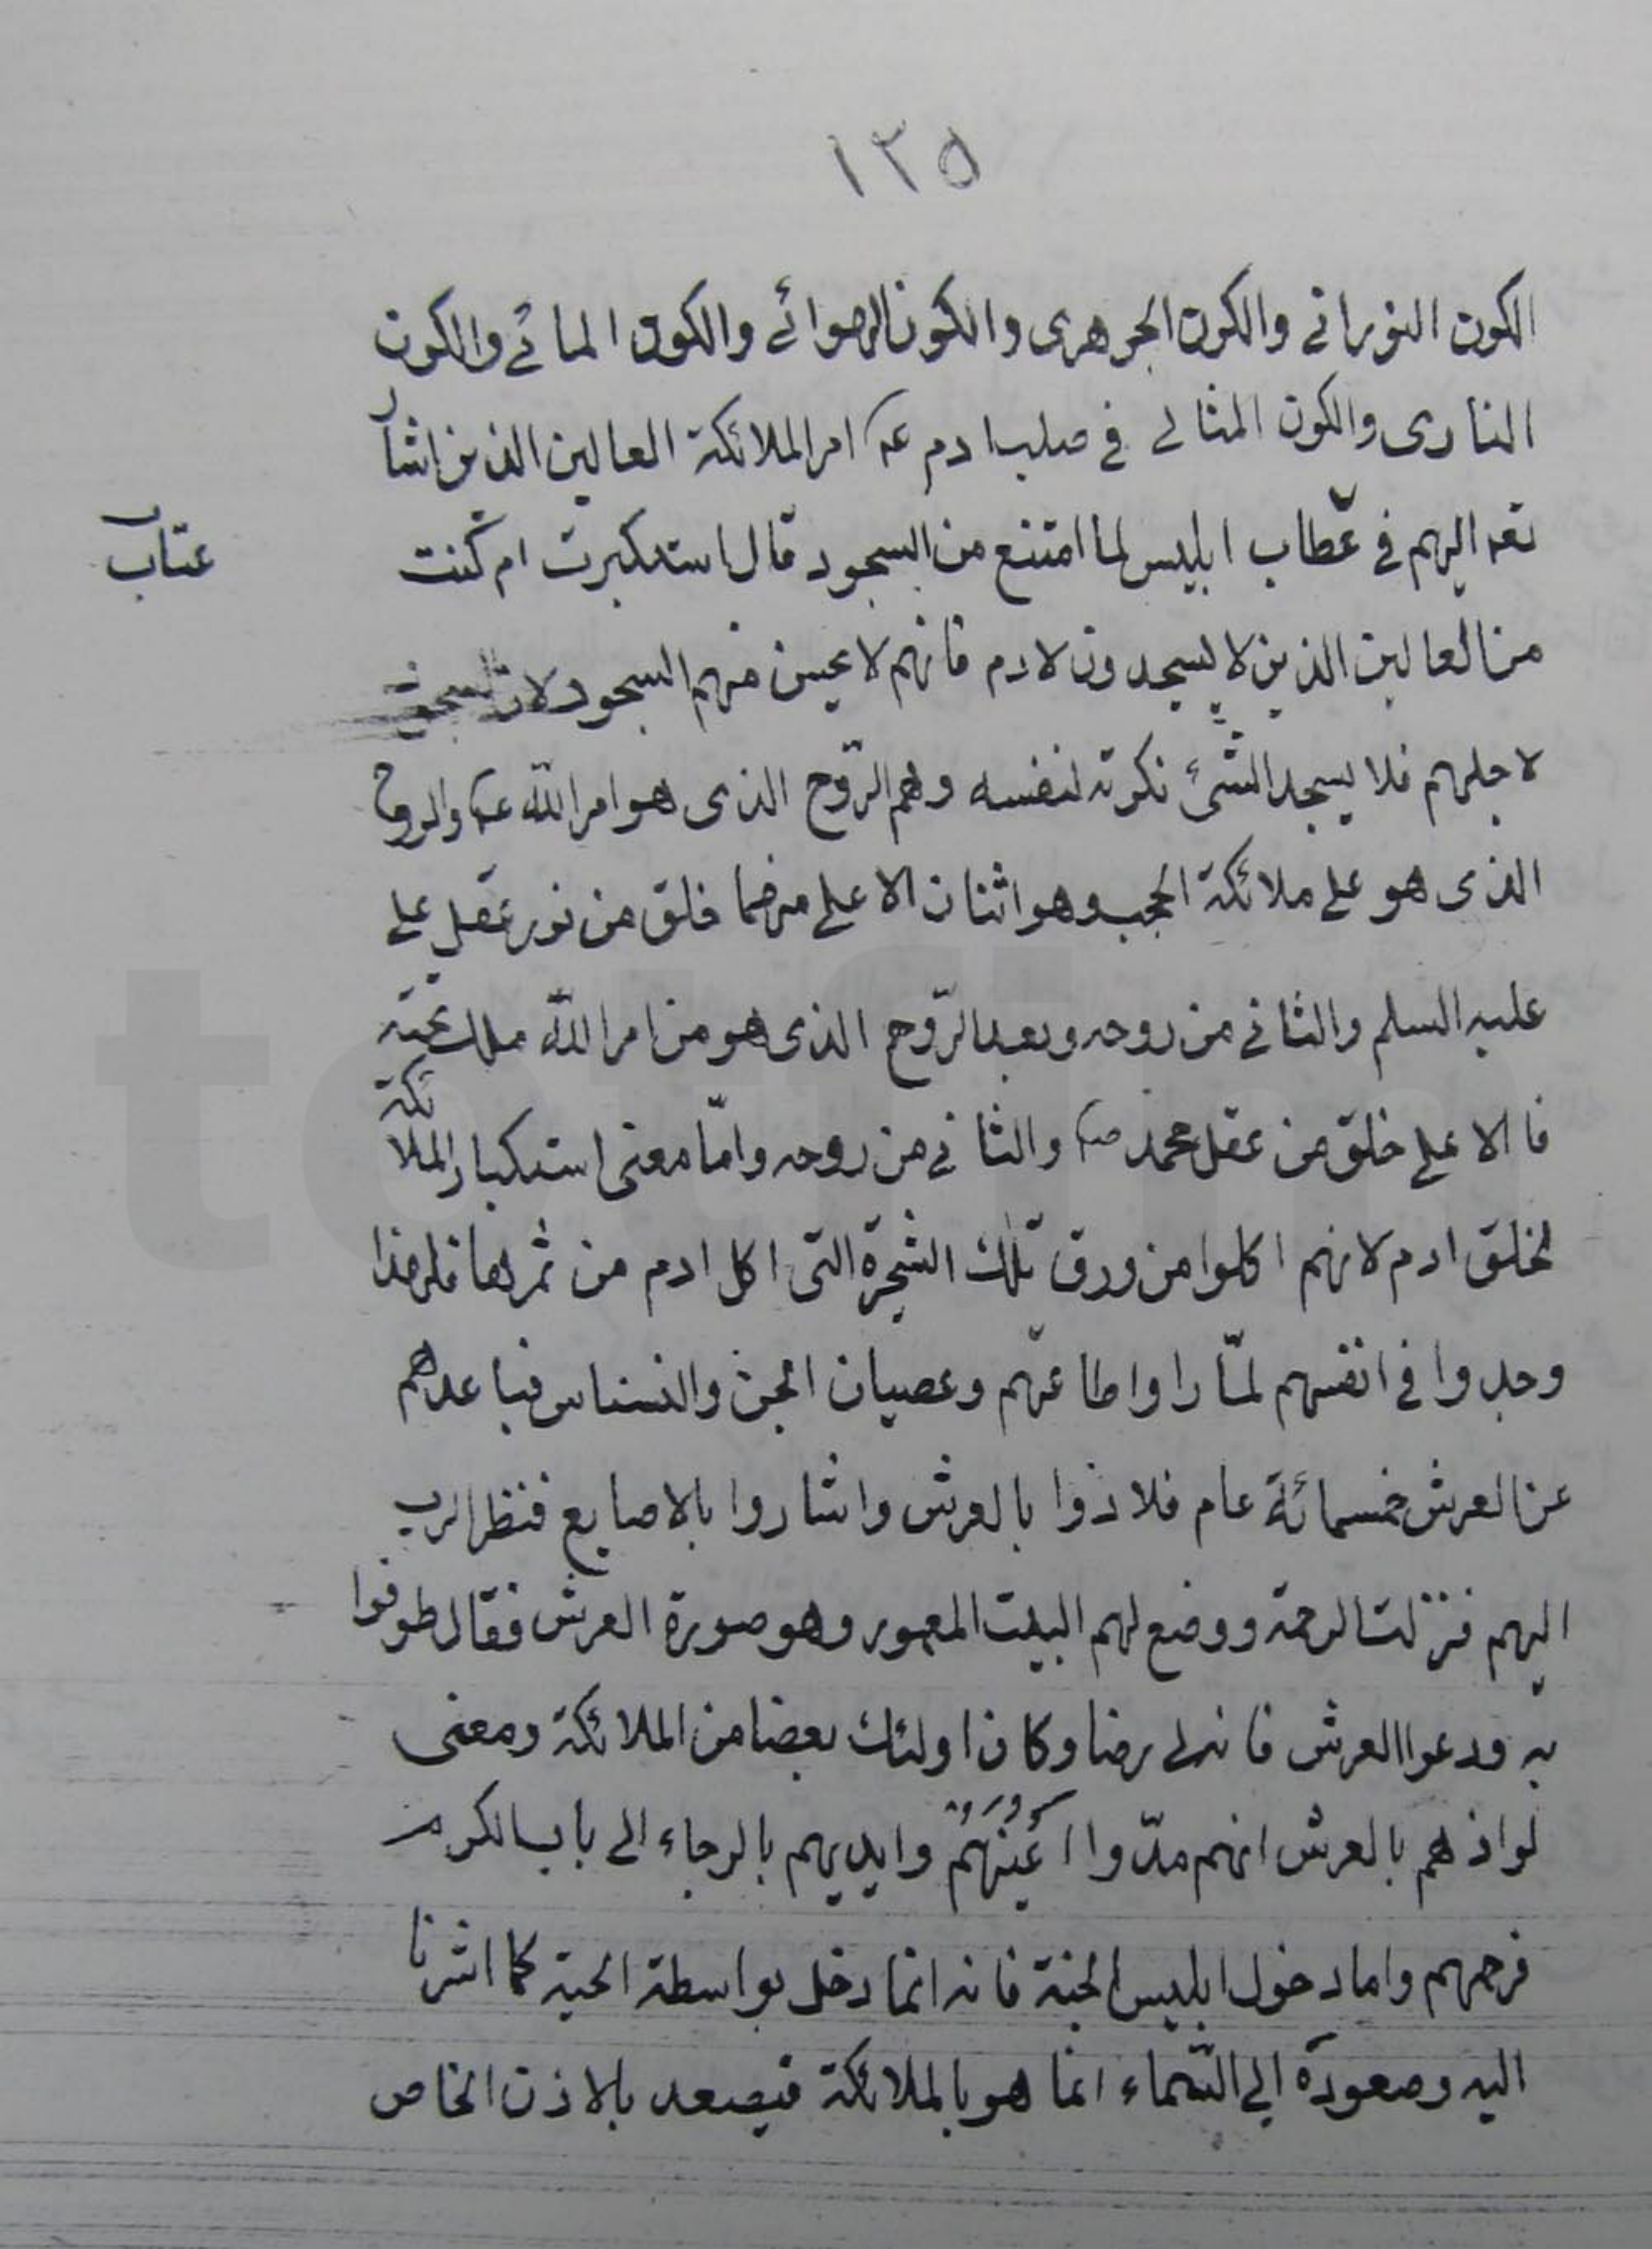 ١٢٥
الكون النورانى والكون الجوهرى والكون الهوائے والكون المائے والكون
النارى والكون المثالے فى صلب ادم عہ امر الملائكة العالين الذين اشار
تعہ اليهم فى عطاب ابليس لما امتنع من السجود قال استكبرت ام كنت
عتاب
من العالين الذين لا يسجدون لادم فانهم لا يحسن منهم السجود لان السجود
لاجلهم فلا يسجد الشئ نكرته لنفسه وهم الروح الذى هو امر الله عہ والروح
الذى هو على ملائكة الحجب وهو اثنان الاعلى منهما خلق من نور عقل على
عليه السلم والثانى من روحه وبعد الرّوح الذى هو من امر الله ملك تحته
فا الاعلى خلق من عقل محمد صہ والثانى من روحه وامّا معنى استكبار الملائكة
لخلق ادم لانهم اكلوا من ورق تلك الشجرة التى اكل ادم من ثمرها فلهذا
وجدوا فى انفسهم لمّا راوا طاعتهم وعصيان الجن والنسناس فباعدهم
عن العرش خمسمائة عام فلاذوا بالعرش واشاروا بالاصابع فنظر الرب
اليهم فنزلت الرحمة ووضع لهم البيت المعمور وهو صورة العرش فقال طوفوا
به ودعوا العرش فانه لى رضا وكان اولئك بعضا من الملائكة ومعنى
لواذهم بالعرش انهم مدّوا اَعْيُنَهُمْ وايديهم بالرجاء الى باب الكرم
فرحمهم واما دخول ابليس الجنة فانه انما دخل بواسطة الحية كما اشرنا
اليه وصعوده الى السّماء انما هو بالملائكة فيصعد بالاذن الخاص